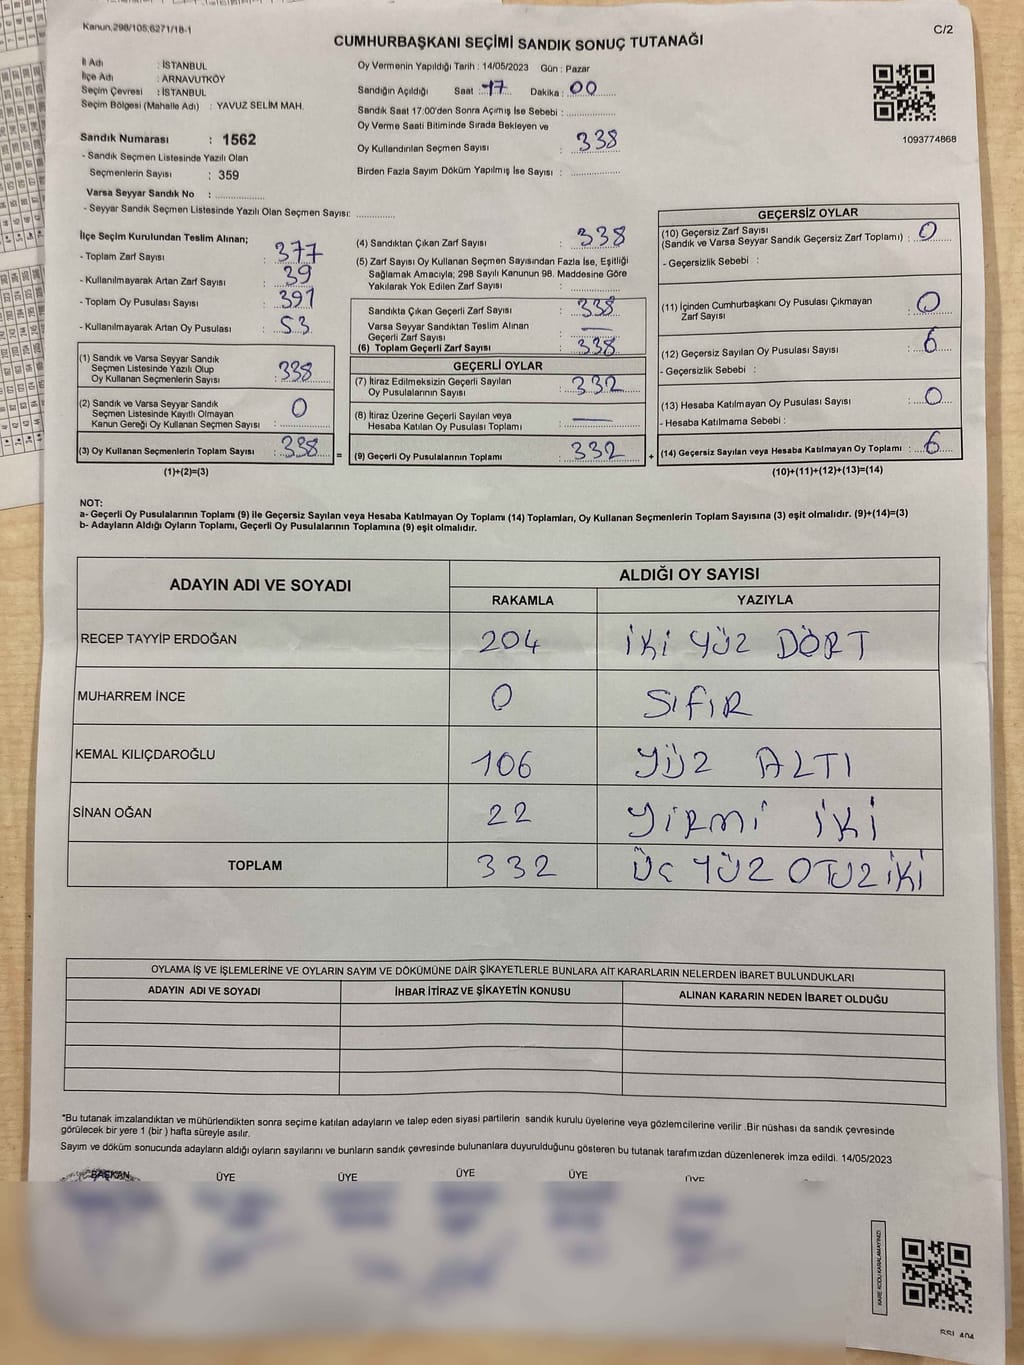 Kanun,298/105,6271/18-1
C/2
CUMHURBAŞKANI SEÇİMİ SANDIK SONUÇ TUTANAĞI
İl Adı : İSTANBUL
İlçe Adı : ARNAVUTKÖY
Seçim Çevresi : İSTANBUL
Seçim Bölgesi (Mahalle Adı) : YAVUZ SELİM MAH.
Sandık Numarası : 1562
- Sandık Seçmen Listesinde Yazılı Olan
Seçmenlerin Sayısı : 359
Varsa Seyyar Sandık No : ................
- Seyyar Sandık Seçmen Listesinde Yazılı Olan Seçmen Sayısı: ............
Oy Vermenin Yapıldığı Tarih : 14/05/2023 Gün : Pazar
Sandığın Açıldığı Saat : 17 Dakika : 00
Sandık Saat 17:00'den Sonra Açılmış İse Sebebi : ................
Oy Verme Saati Bitiminde Sırada Bekleyen ve
Oy Kullandırılan Seçmen Sayısı : 338
Birden Fazla Sayım Döküm Yapılmış İse Sayısı : ................
1093774868
İlçe Seçim Kurulundan Teslim Alınan;
- Toplam Zarf Sayısı : 377
- Kullanılmayarak Artan Zarf Sayısı : 39
- Toplam Oy Pusulası Sayısı : 391
- Kullanılmayarak Artan Oy Pusulası : 53
(1) Sandık ve Varsa Seyyar Sandık
Seçmen Listesinde Yazılı Olup
Oy Kullanan Seçmenlerin Sayısı : 338
(2) Sandık ve Varsa Seyyar Sandık
Seçmen Listesinde Kayıtlı Olmayan
Kanun Gereği Oy Kullanan Seçmen Sayısı : 0
(3) Oy Kullanan Seçmenlerin Toplam Sayısı : 338 =
(1)+(2)=(3)
(4) Sandıktan Çıkan Zarf Sayısı : 338
(5) Zarf Sayısı Oy Kullanan Seçmen Sayısından Fazla İse, Eşitliği
Sağlamak Amacıyla; 298 Sayılı Kanunun 98. Maddesine Göre
Yakılarak Yok Edilen Zarf Sayısı : ................
Sandıkta Çıkan Geçerli Zarf Sayısı : 338
Varsa Seyyar Sandıktan Teslim Alınan
Geçerli Zarf Sayısı : —
(6) Toplam Geçerli Zarf Sayısı : 338
GEÇERLİ OYLAR
(7) İtiraz Edilmeksizin Geçerli Sayılan
Oy Pusulalarının Sayısı : 332
(8) İtiraz Üzerine Geçerli Sayılan veya
Hesaba Katılan Oy Pusulası Toplamı : —
(9) Geçerli Oy Pusulalarının Toplamı : 332 +
GEÇERSİZ OYLAR
(10) Geçersiz Zarf Sayısı
(Sandık ve Varsa Seyyar Sandık Geçersiz Zarf Toplamı) : 0
- Geçersizlik Sebebi :
(11) İçinden Cumhurbaşkanı Oy Pusulası Çıkmayan
Zarf Sayısı : 0
(12) Geçersiz Sayılan Oy Pusulası Sayısı : 6
- Geçersizlik Sebebi :
(13) Hesaba Katılmayan Oy Pusulası Sayısı : 0
- Hesaba Katılmama Sebebi :
(14) Geçersiz Sayılan veya Hesaba Katılmayan Oy Toplamı : 6
(10)+(11)+(12)+(13)=(14)
NOT:
a- Geçerli Oy Pusulalarının Toplamı (9) ile Geçersiz Sayılan veya Hesaba Katılmayan Oy Toplamı (14) Toplamları, Oy Kullanan Seçmenlerin Toplam Sayısına (3) eşit olmalıdır. (9)+(14)=(3)
b- Adayların Aldığı Oyların Toplamı, Geçerli Oy Pusulalarının Toplamına (9) eşit olmalıdır.
ADAYIN ADI VE SOYADI
ALDIĞI OY SAYISI
RAKAMLA YAZIYLA
RECEP TAYYİP ERDOĞAN 204 İKİ YÜZ DÖRT
MUHARREM İNCE 0 SIFIR
KEMAL KILIÇDAROĞLU 106 YÜZ ALTI
SİNAN OĞAN 22 YİRMİ İKİ
TOPLAM 332 ÜÇ YÜZ OTUZ İKİ
OYLAMA İŞ VE İŞLEMLERİNE VE OYLARIN SAYIM VE DÖKÜMÜNE DAİR ŞİKAYETLERLE BUNLARA AİT KARARLARIN NELERDEN İBARET BULUNDUKLARI
ADAYIN ADI VE SOYADI İHBAR İTİRAZ VE ŞİKAYETİN KONUSU ALINAN KARARIN NEDEN İBARET OLDUĞU
*Bu tutanak imzalandıktan ve mühürlendikten sonra seçime katılan adayların ve talep eden siyasi partilerin sandık kurulu üyelerine veya gözlemcilerine verilir .Bir nüshası da sandık çevresinde
görülecek bir yere 1 (bir ) hafta süreyle asılır.
Sayım ve döküm sonucunda adayların aldığı oyların sayılarını ve bunların sandık çevresinde bulunanlara duyurulduğunu gösteren bu tutanak tarafımızdan düzenlenerek imza edildi. 14/05/2023
BAŞKAN ÜYE ÜYE ÜYE ÜYE ÜYE
KARE KODU KARALAMAYINIZ!